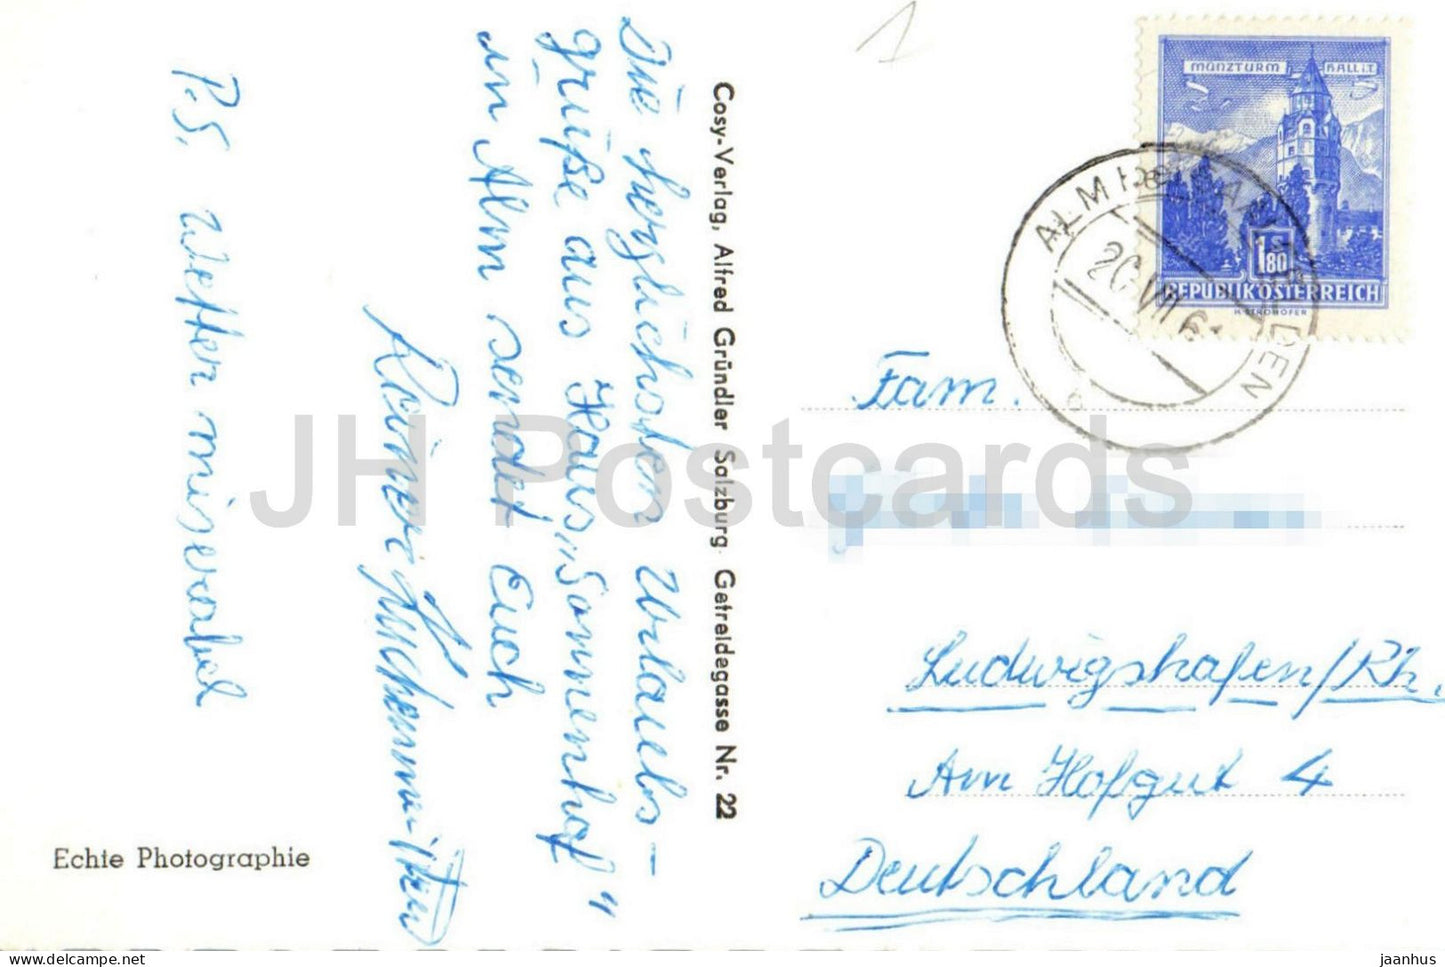 1
Die herzlichsten Urlaubs-
grüße aus Haus "Sonnenhof"
in Alm sendet Euch
P.S. Wetter miserabel
Echte Photographie
Cosy-Verlag, Alfred Gründler Salzburg Getreidegasse Nr. 22
MÜNZTURM HALL i.T.
1.80
REPUBLIK ÖSTERREICH
H. STROHOFER
ALM
20. VII. 6
Fam.
Ludwigshafen/Rh.
Am Hofgut 4
Deutschland
JH Postcards
jaanhus